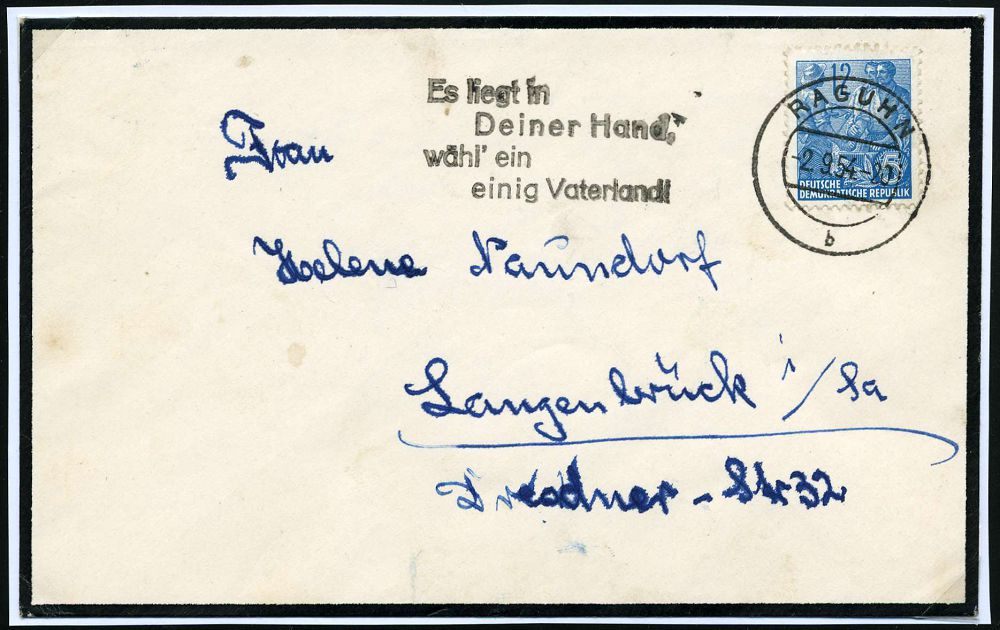 Es liegt in
Deiner Hand,
wähl' ein
einig Vaterland!
12
RAGUHN
-2.9.54.-
5
DEUTSCHE
DEMOKRATISCHE REPUBLIK
b
Frau
Helene Naundorf
Langenbrück i/Sa
Dresdner-Str 32